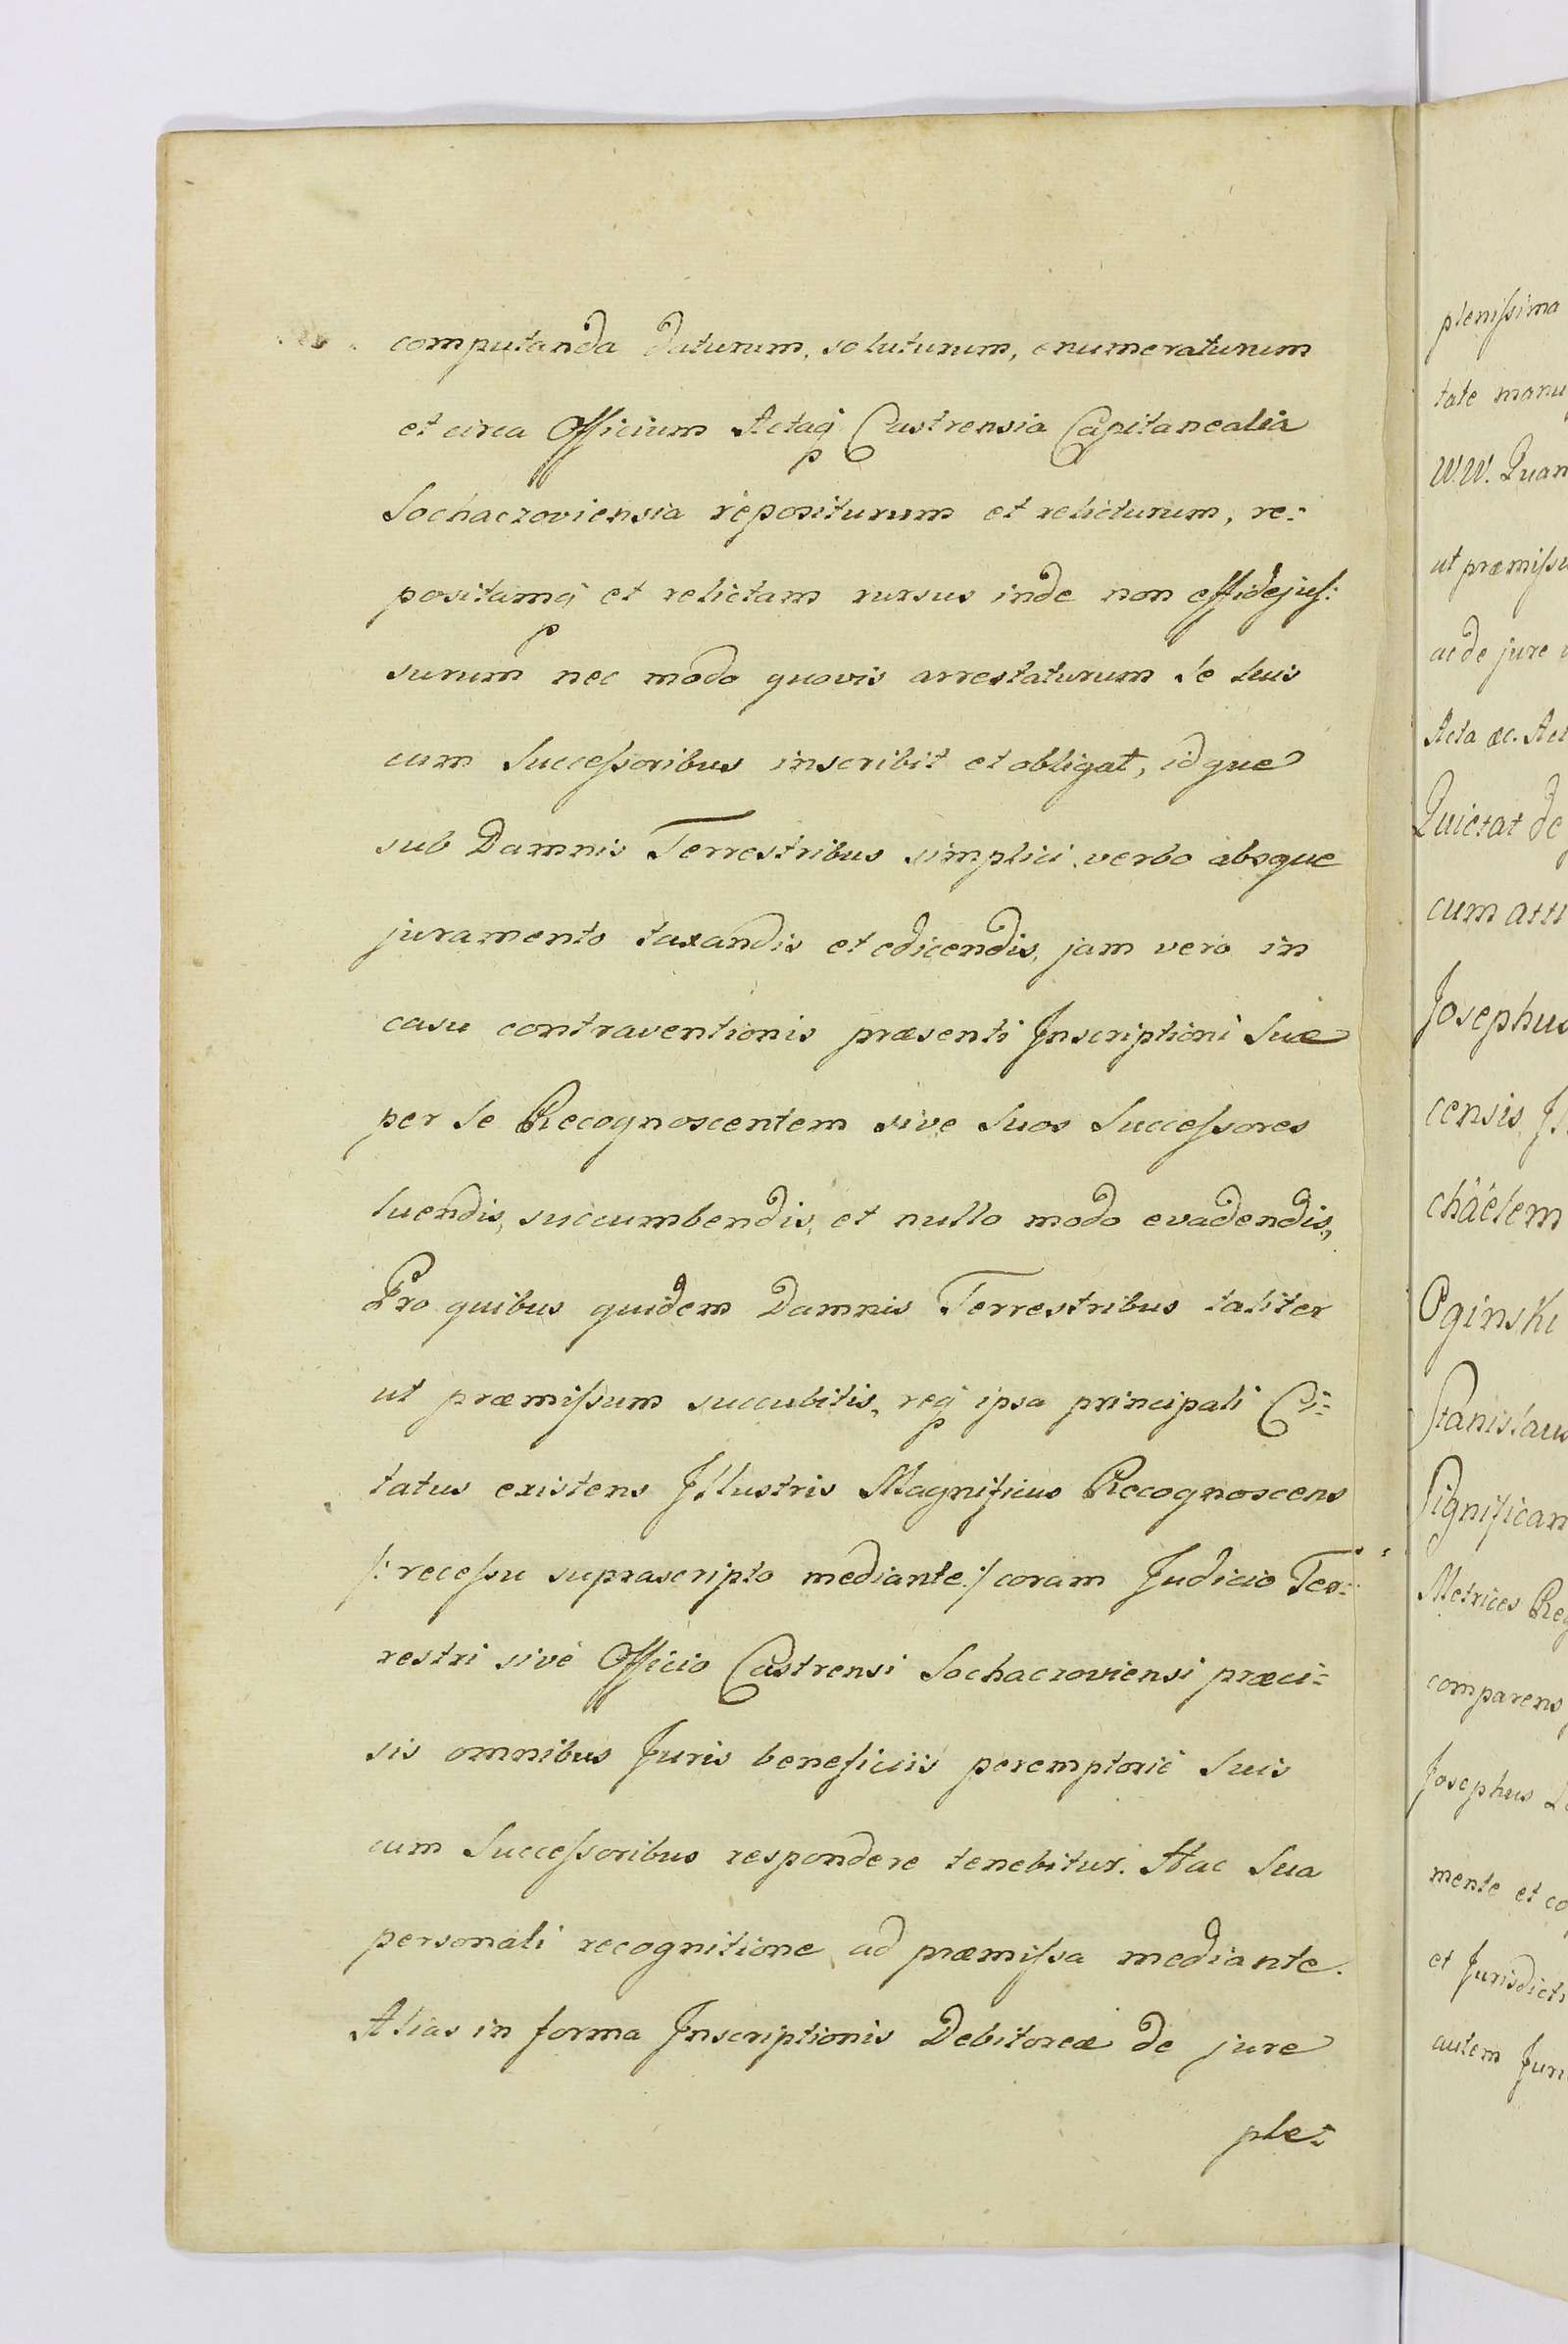 computanda daturum, soluturum, enumeraturum
et circa Officium Actaq Castrensia Capitanealia
Sochaczoviensia repositurum et relicturum, re=
positamq et relictam rursus inde non effidejuſ:
surum nec modo quovis arrestaturum Se Suis
cum Succeſsoribus inscribit et obligat, idque
sub Damnis Terrestribus simplici verbo absque
juramento taxandis et edicendis, jam vero in
casu contraventionis præsenti Inscriptioni Suæ
per Se Recognoscentem sive Suos Succeſsores
luendis, succumbendis, et nullo modo evadendis,
Pro quibus quidem Damnis Terrestribus taliter
ut præmiſsum succubitis, req ipsa principali Ci=
tatus existens Illustris Magnificus Recognoscens
/: receſsu suprascripto mediante :/ coram Judicio Ter=
restri sivè Officio Castrensi Sochaczoviensi præci=
sis omnibus Juris beneficiis peremptoriè Suis
cum Succeſsoribus respondere tenebitur. Hac Sua
personali recognitione ad præmiſsa mediante.
Alias in forma Inscriptionis Debitoreæ de jure
ple=
pleniſsima
tate manu
W.W. Quan
ut præmiſsu
ac de jure
Acta æc. Act
Quietat de
cum atti
Josephus
censis
chäelem
Oginski
Stanislaus
Significan
Metrices Reg
comparens
Josephus
mente et co
et Jurisdicti
autem Juri